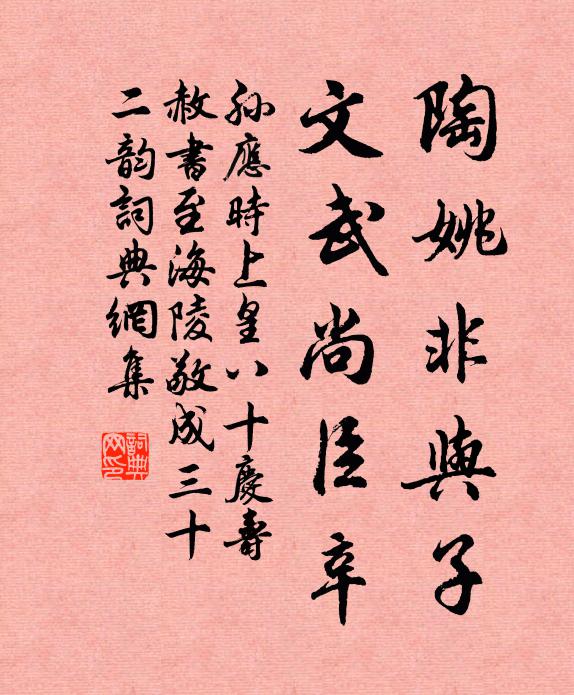 陶姚非與子
文武尚臣辛
孫應時上皇八十慶壽
赦書至海陵敬成三十
二韵詞典網集
詞典網印